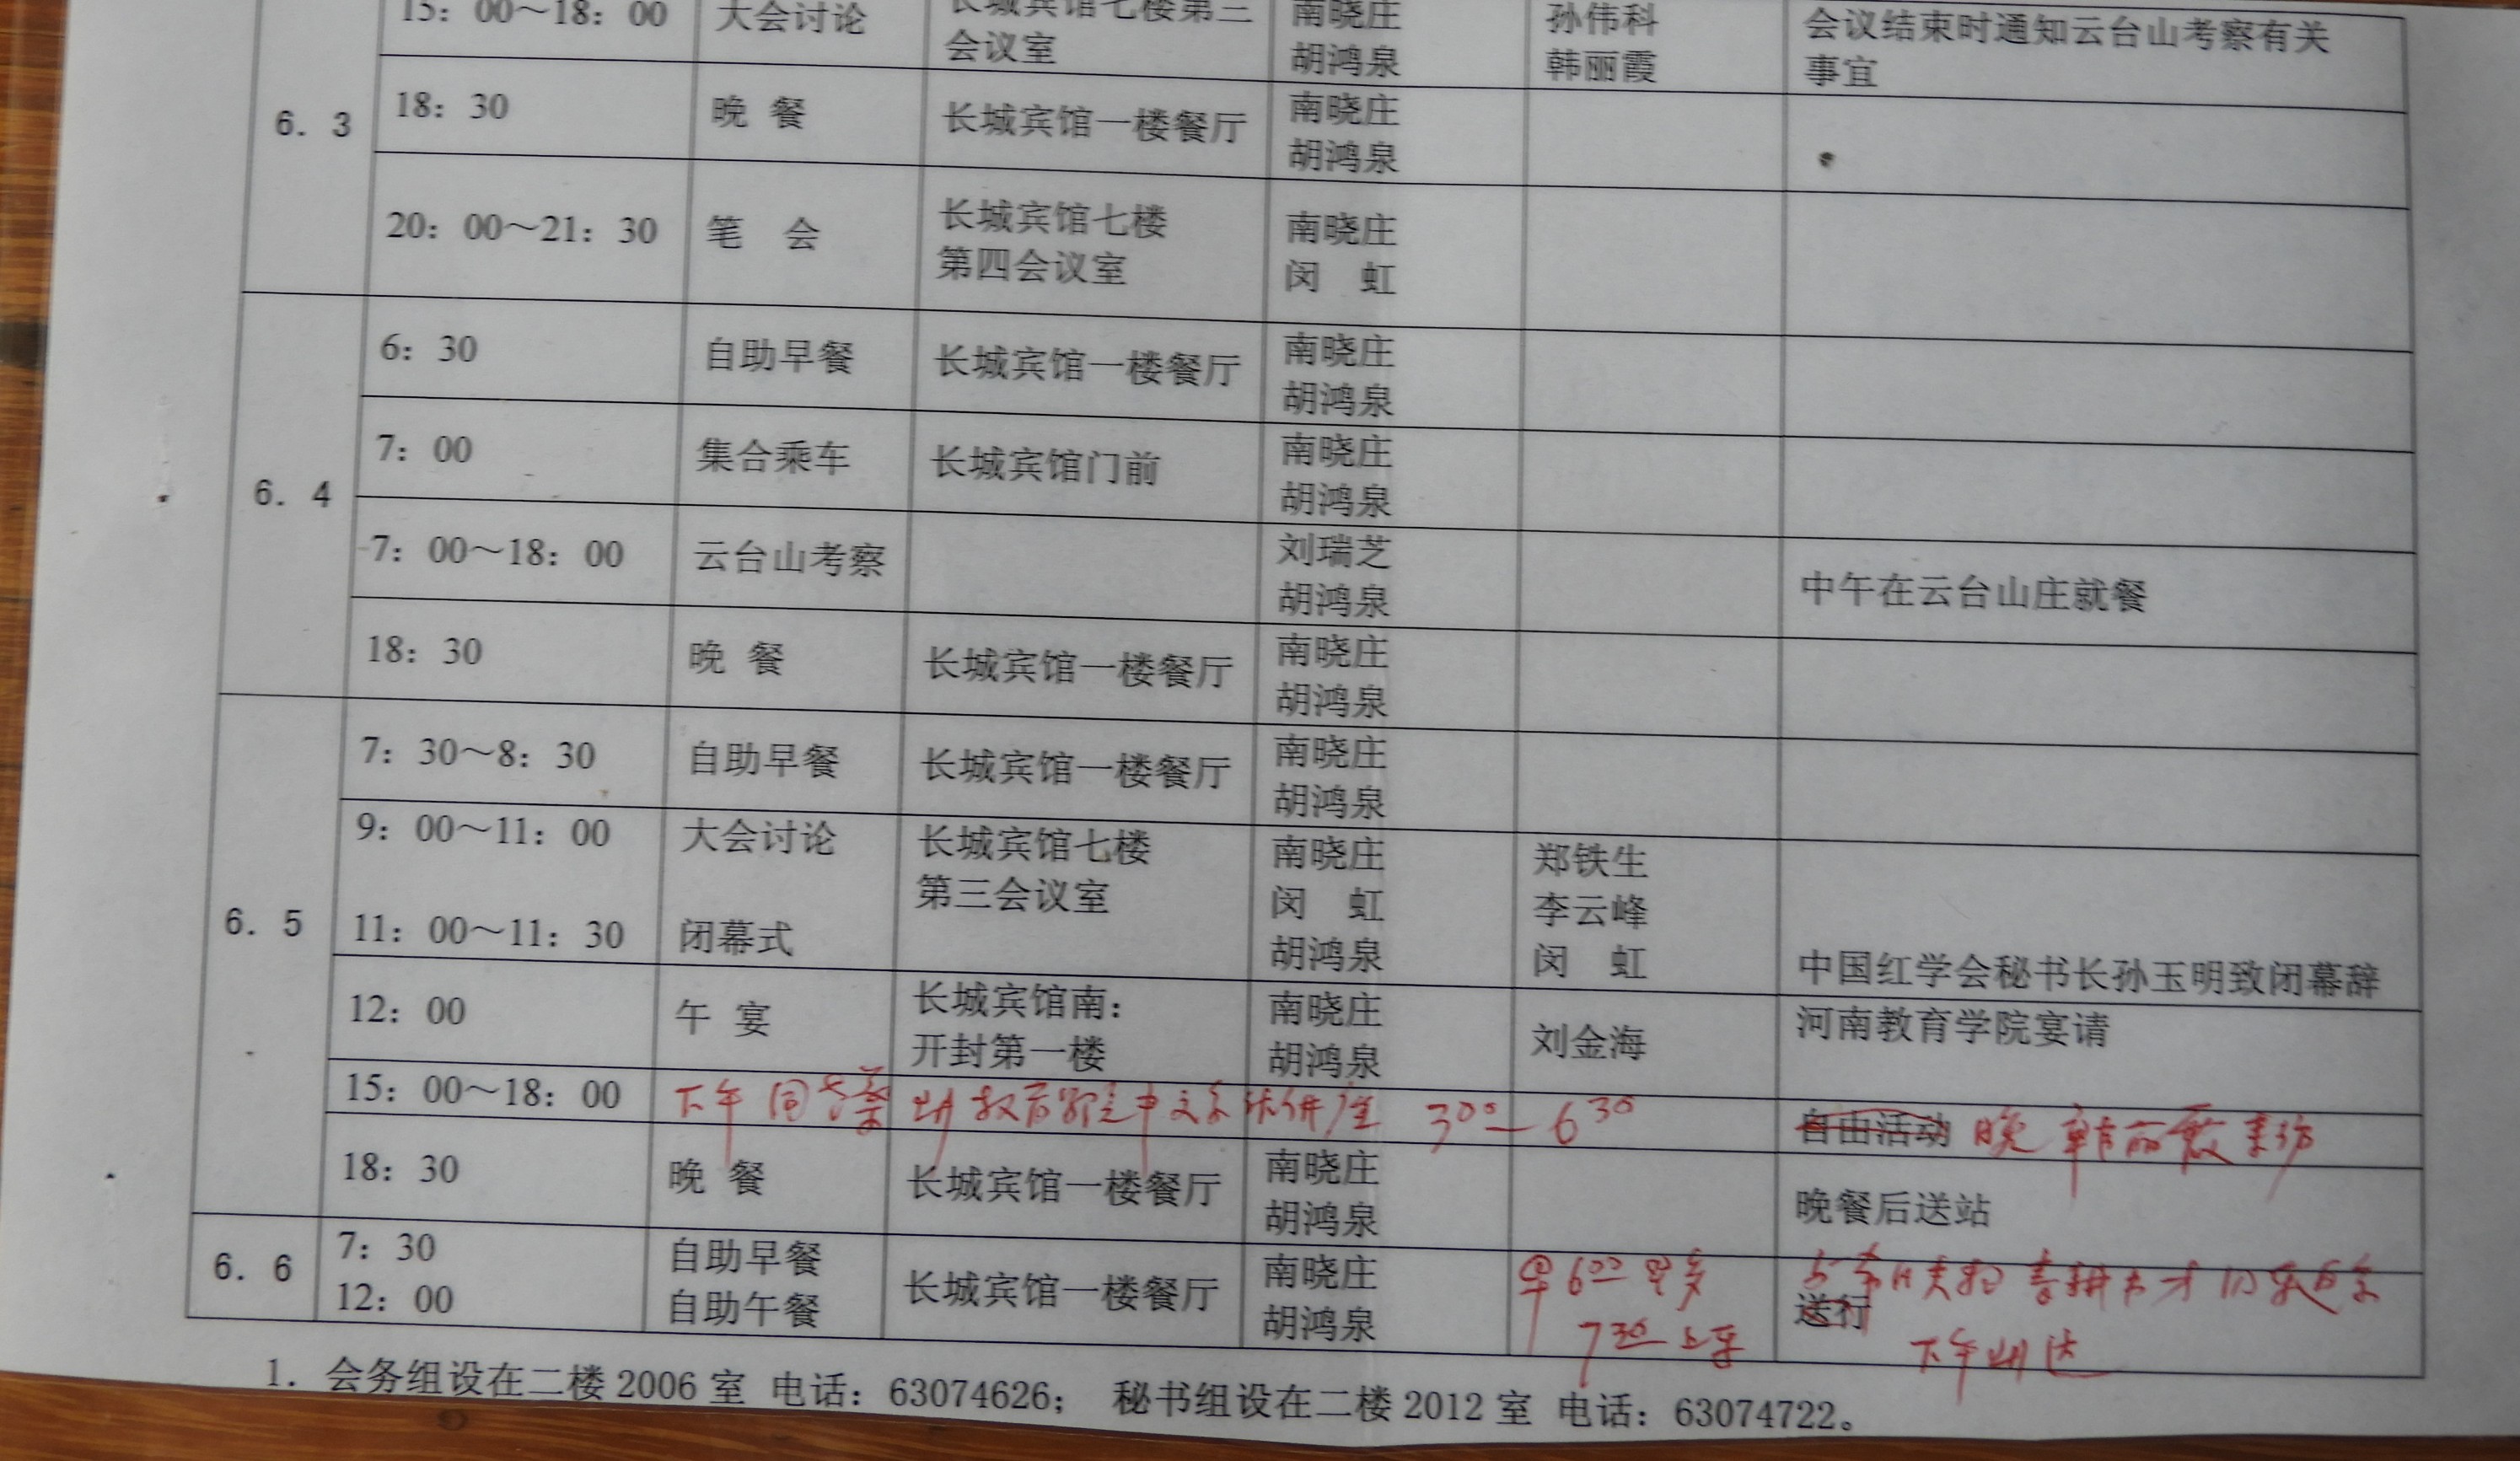 15：00～18：00 大会讨论 长城宾馆七楼第三 南晓庄 孙伟科 会议结束时通知云台山考察有关
会议室 胡鸿泉 韩丽霞 事宜
6．3
18：30 晚 餐 长城宾馆一楼餐厅 南晓庄
胡鸿泉
20：00～21：30 笔 会 长城宾馆七楼 南晓庄
第四会议室 闵 虹
6．4
6：30 自助早餐 长城宾馆一楼餐厅 南晓庄
胡鸿泉
7：00 集合乘车 长城宾馆门前 南晓庄
胡鸿泉
7：00～18：00 云台山考察 刘瑞芝 中午在云台山庄就餐
胡鸿泉
18：30 晚 餐 长城宾馆一楼餐厅 南晓庄
胡鸿泉
6．5
7：30～8：30 自助早餐 长城宾馆一楼餐厅 南晓庄
胡鸿泉
9：00～11：00 大会讨论 长城宾馆七楼 南晓庄 郑铁生
第三会议室 闵 虹 李云峰
11：00～11：30 闭幕式 胡鸿泉 闵 虹 中国红学会秘书长孙玉明致闭幕辞
12：00 午 宴 长城宾馆南： 南晓庄 刘金海 河南教育学院宴请
开封第一楼 胡鸿泉
15：00～18：00 下午 教育学院中文系 讲座 3 00 — 6 30 自由活动 晚 韩丽霞来访
18：30 晚 餐 长城宾馆一楼餐厅 南晓庄 晚餐后送站
胡鸿泉
6．6
7：30 自助早餐 长城宾馆一楼餐厅 南晓庄 早 6 00
12：00 自助午餐 胡鸿泉 送行
7 30 下午
1．会务组设在二楼 2006 室 电话：63074626； 秘书组设在二楼 2012 室 电话：63074722。